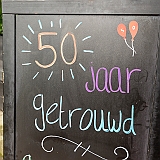 50
jaar
getrouwd